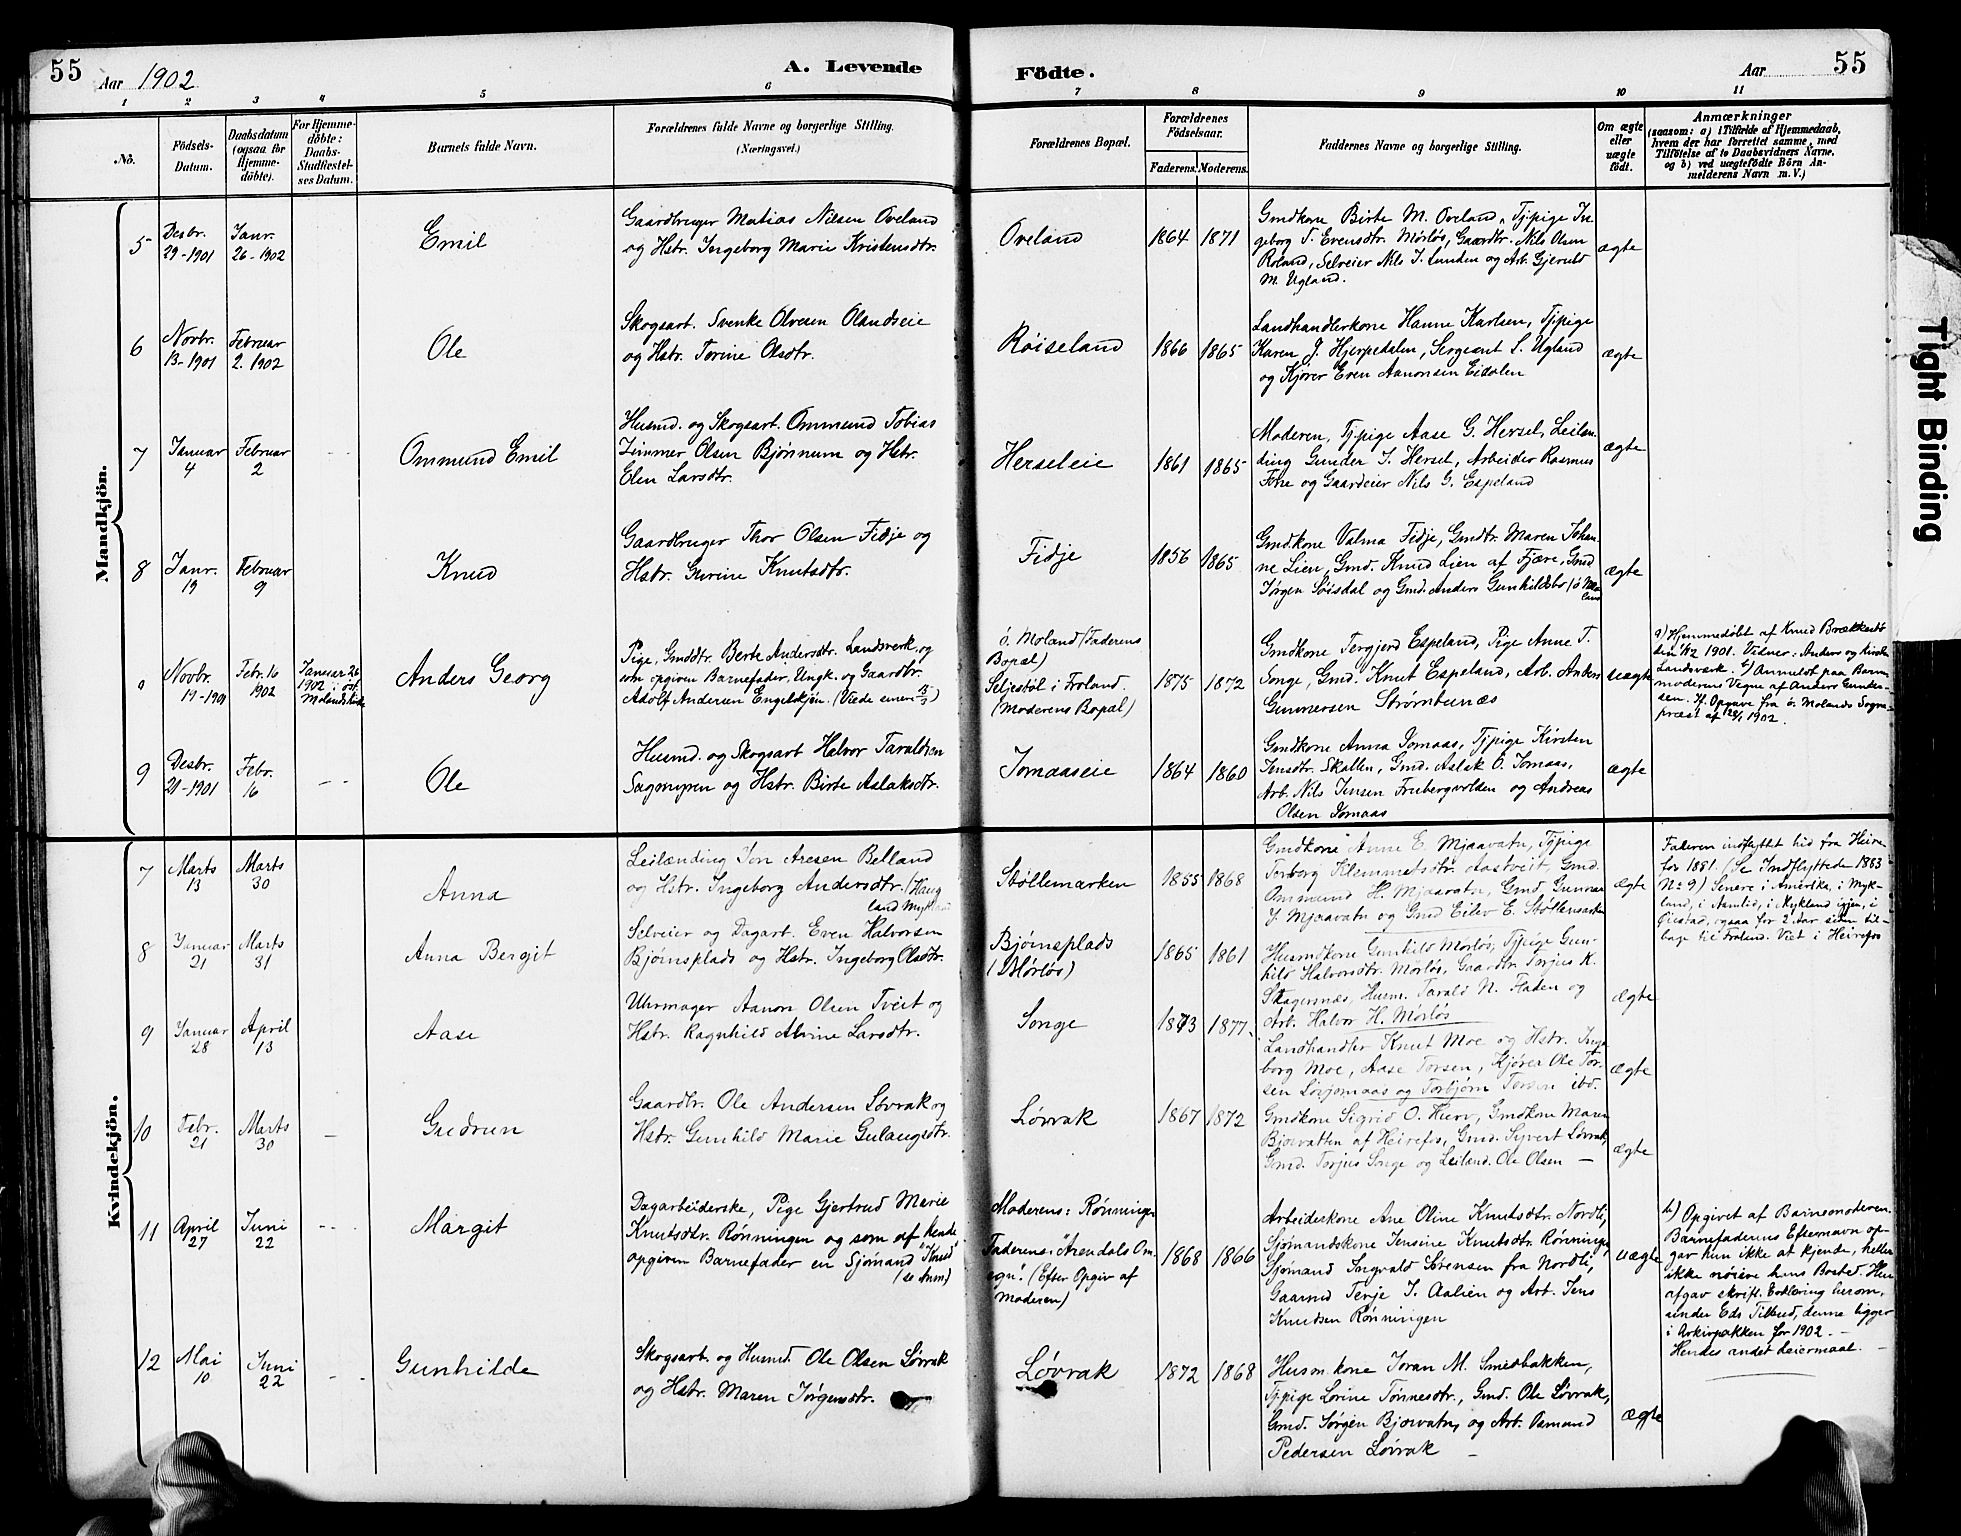 55
Aar 1902
A. Levende
Födte.
Aar
55
1 2 3 4 5 6 7 8 9 10 11
No.
Födsels-
Datum.
Daabsdatum
(ogsaa for
Hjemme-
döbte).
For Hjemme-
döbte:
Daabs-
Stadfæstel-
ses Datum.
Barnets fulde Navn.
Forældrenes fulde Navne og borgerlige Stilling.
(Næringsvei.)
Forældrenes Bopæl.
Forældrenes
Födselsaar.
Faderens. Moderens.
Faddernes Navne og borgerlige Stilling.
Om ægte
eller
uægte
födt.
Anmærkninger
(saasom: a) i Tilfælde af Hjemmedaab,
hvem der har forrettet samme, med
Tilföielse af to Daabsvidners Navne.
og b) ved uægtefödte Börn An-
melderens Navn m. V.)
Mandkjön.
5
Desbr.
29-1901
Janr.
26-1902
Emil
Gaardbruger Matias Nilsen Oveland
og Hstr. Ingeborg Marie Kristensdtr.
Oveland
1864 1871
Gmdkone Birte M. Oveland, Tjpige In-
geborg T. Evensdtr. Mörlös, Gaardbr. Nils Olsen
Roland, Selveier Nils J. Lunden og Arb. Gjeruld
M. Ugland.
ægte
6
Novbr.
13-1901
Februar
2. 1902
Ole
Skogsarb. Svenke Olvesen Olandseie
og Hstr. Torine Olsdtr.
Röiseland
1866 1865
Landhandlerkone Hanne Karlsen, Tjpige
Karen J. Hjerpedalen, Sergeant S. Ugland
og Kjörer Even Aanonsen Eidalen
ægte
7
Januar
4
Februar
2
Ommund Emil
Husmd. og Skogsarb. Ommund Tobias
Zimmer Olsen Bjönnum og Hstr.
Elen Larsdtr.
Herseleie
1861 1865
Moderen, Tjpige Aase G. Hersel, Leilen-
ding Gunder J. Hersel, Arbeider Rasmus
Fone og Gaardeier Nils G. Espeland
ægte
8
Janr.
19
Februar
9
Knud
Gaardbruger Thor Olsen Fidje og
Hstr. Gurine Knutsdtr.
Fidje
1856 1865
Gmd.kone Valma Fidje, Gmdtr. Maren Johan-
ne Lien, Gmd. Knud Lien af Fjære, Gmd
Jörgen Söisdal og Gmd. Anders Gunhildsbo (ö. Mo-
land
ægte
Novbr.
19-1901
Febr. 16
1902
Januar 26
1902 i öst.
Molands Kirke
Anders Georg
Pige, Gmddtr. Berte Andersdtr. Landsverk, og
som opgiven Barnefader, Ungk. og Gaardbr.
Adolf Andersen Engelskjön.
ö. Moland (Faderens
Bopæl)
Seljestöl i Froland.
(Moderens Bopæl)
1875 1872
Gmdkone Tergjerd Espeland, Pige Anne T.
Songe, Gmd. Knut Espeland, Arb. Anders
Gunnersen Strömbunæs
uægte
a) Hjemmedöbt af Knud Brækkestö
den 1/12 1901. Vidner: Anders og Kirsten
Landsverk. b) Anmeldt paa Barne-
moderens Vegne af Anders Gunder-
sen. Jf. Opgave fra ö. Molands Sogne-
præst af 28/1 1902.
9
Desbr.
21-1901
Febr.
16
Ole
Husmd. og Skogsarb Halvor Taraldsen
Sagmyren og Hstr. Birte Aslaksdtr.
Jomaaseie
1864 1860
Gmdkone Anna Jomaas, Tjpige Kirsten
Jensdtr. Skallen, Gmd. Aslak O. Jomaas,
Arb. Nils Jensen Frubergvolden og Andreas
Olsen Jomaas
ægte
Kvindekjön.
7
Marts
13
Marts
30
Anna
Leilænding Jon Aresen Belland
og Hstr. Ingeborg Andersdtr. (Haug
land Mykland
Stöllemarken
1855 1868
Gmdkone Anne E. Mjaavatn, Tjpige
Torborg Klemmetsdtr. Aastveit, Gmd.
Ommund H. Mjaavatn, Gmd. Gunnar
J. Mjaavatn og Gmd Eilev E. Stöllemarken
ægte
Faderen indflyttet hid fra Heire-
fos 1881. (Se Indflyttede 1883
No 9) Senere i Amerika, i Myk-
land, i Aamlid, i Mykland igjen, i
Öiestad, ogsaa for 2 Aar siden til-
bage til Froland. Viet i Heirefos
8
Januar
21
Marts
31
Anna Bergit
Selveier og Dagarb. Even Halvorsen
Björnsplads og Hstr. Ingeborg Olsdtr.
Björnsplads
(Mörlös)
1865 1861
Husmdkone Gunhild Mörlös, Tjpige Gun-
hild Halvorsdtr. Mörlös, Gaardbr. Torjus K.
Skagersnæs, Husm. Tarald N. Fladen og
Arb. Halvor H. Mörlös
ægte
9
Januar
28
April
13
Aase
Uhrmager Aanon Olsen Tveit og
Hstr. Ragnhild Alvine Larsdtr.
Songe
1873 1877
Landhandler Knut Moe og Hstr. Inge
borg Moe, Aase Torsen, Kjörer Ole Tor-
sen Lorjomaas og Torbjörn Torsen ibd.
ægte
10
Febr.
21
Marts
30
Gudrun
Gaardbr. Ole Andersen Lövrak og
Hstr. Gunhild Marie Gulaugsdtr.
Lövrak
1867 1872
Gmdkone Sigrid O. Hurv, Gmdkone Maren
Bjorvatten af Heirefos, Gmd. Syvert Lövrak,
Gmd. Torjus Songe og Leilænd. Ole Olsen —
ægte
11
April
27
Juni
22
Margit
Dagarbeiderske, Pige Gjertrud Marie
Knutsdtr. Rönningen og som af hende
opgiven Barnefader en Sjömand "Knud"
(se Anm)
Moderens: Rönningen
Faderens: "Arendals Om-
egn". (Efter Opgiv af
Moderen)
1868 1866
Arbeiderkone Ane Oline Knutsdtr. Nordli,
Sjömandskone Jensine Knutsdtr. Rönningen,
Sjömand Ingvald Sörensen fra Nordli,
Gaarmd Terje J. Aalien og Arb. Jens
Knudsen Rönningen
uægte
b.) Opgivet af Barnemoderen.
Barnefaderens Efternavn op-
gav hun ikke at kjende, heller
ikke nöiere hans Bosted. Hun
afgav skriftl. Erklæring herom,
under Eds Tilbud, denne ligger
i Arkivpakken for 1902. —
Hendes andet Leiermaal. —
12
Mai
10
Juni
22
Gunhilde
Skogsarb. og Husmd. Ole Olsen Lövrak
og Hstr. Maren Jörgensdtr.
Lövrak
1872 1868
Husm.kone Joran M. Smedbakken,
Tjpige Lorine Tönnesdtr., Gmd. Ole Lövrak,
Gmd. Jörgen Bjorvatn, og Arb. Osmund
Pedersen Lövrak —
ægte
Tight Binding